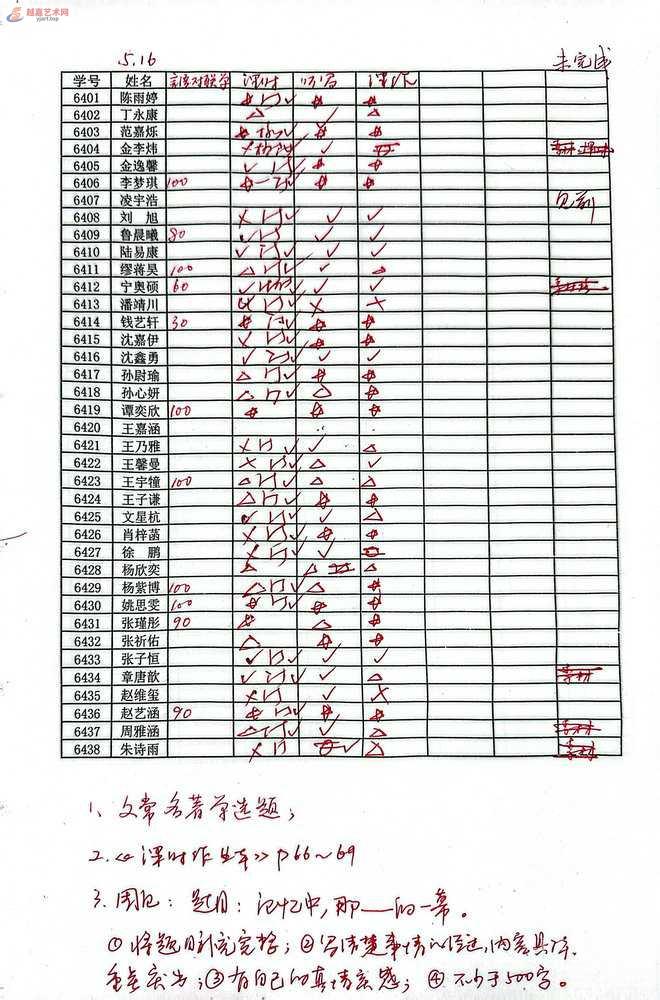 越嘉艺术网
yjart.top
5.16 未完成
学号 姓名 课时 听写 课作
6401 陈雨婷
6402 丁永康
6403 范嘉烁
6404 金李炜
6405 金逸馨
6406 李梦琪 100
6407 凌宇浩 见前
6408 刘旭
6409 鲁晨曦 80
6410 陆易康
6411 缪蒋昊 100
6412 宁奥硕 60
6413 潘靖川
6414 钱艺轩 30
6415 沈嘉伊
6416 沈鑫勇
6417 孙尉瑜
6418 孙心妍
6419 谭奕欣 100
6420 王嘉涵
6421 王乃雅
6422 王馨曼
6423 王宇犝 100
6424 王子谦
6425 文星杭
6426 肖梓菡
6427 徐鹏
6428 杨欣奕
6429 杨紫博 100
6430 姚思雯 100
6431 张瑾彤 90
6432 张祈佑
6433 张子恒
6434 章唐歆
6435 赵维玺
6436 赵艺涵 90
6437 周雅涵
6438 朱诗雨
1、文常名著单选题；
2.《课时作业本》P66～69
3.周记：题目：记忆中，那——的一幕。
①将题目补充完整；②写清楚事情的经过，内容具体，
重点突出；③有自己的真情实感；④不少于500字。